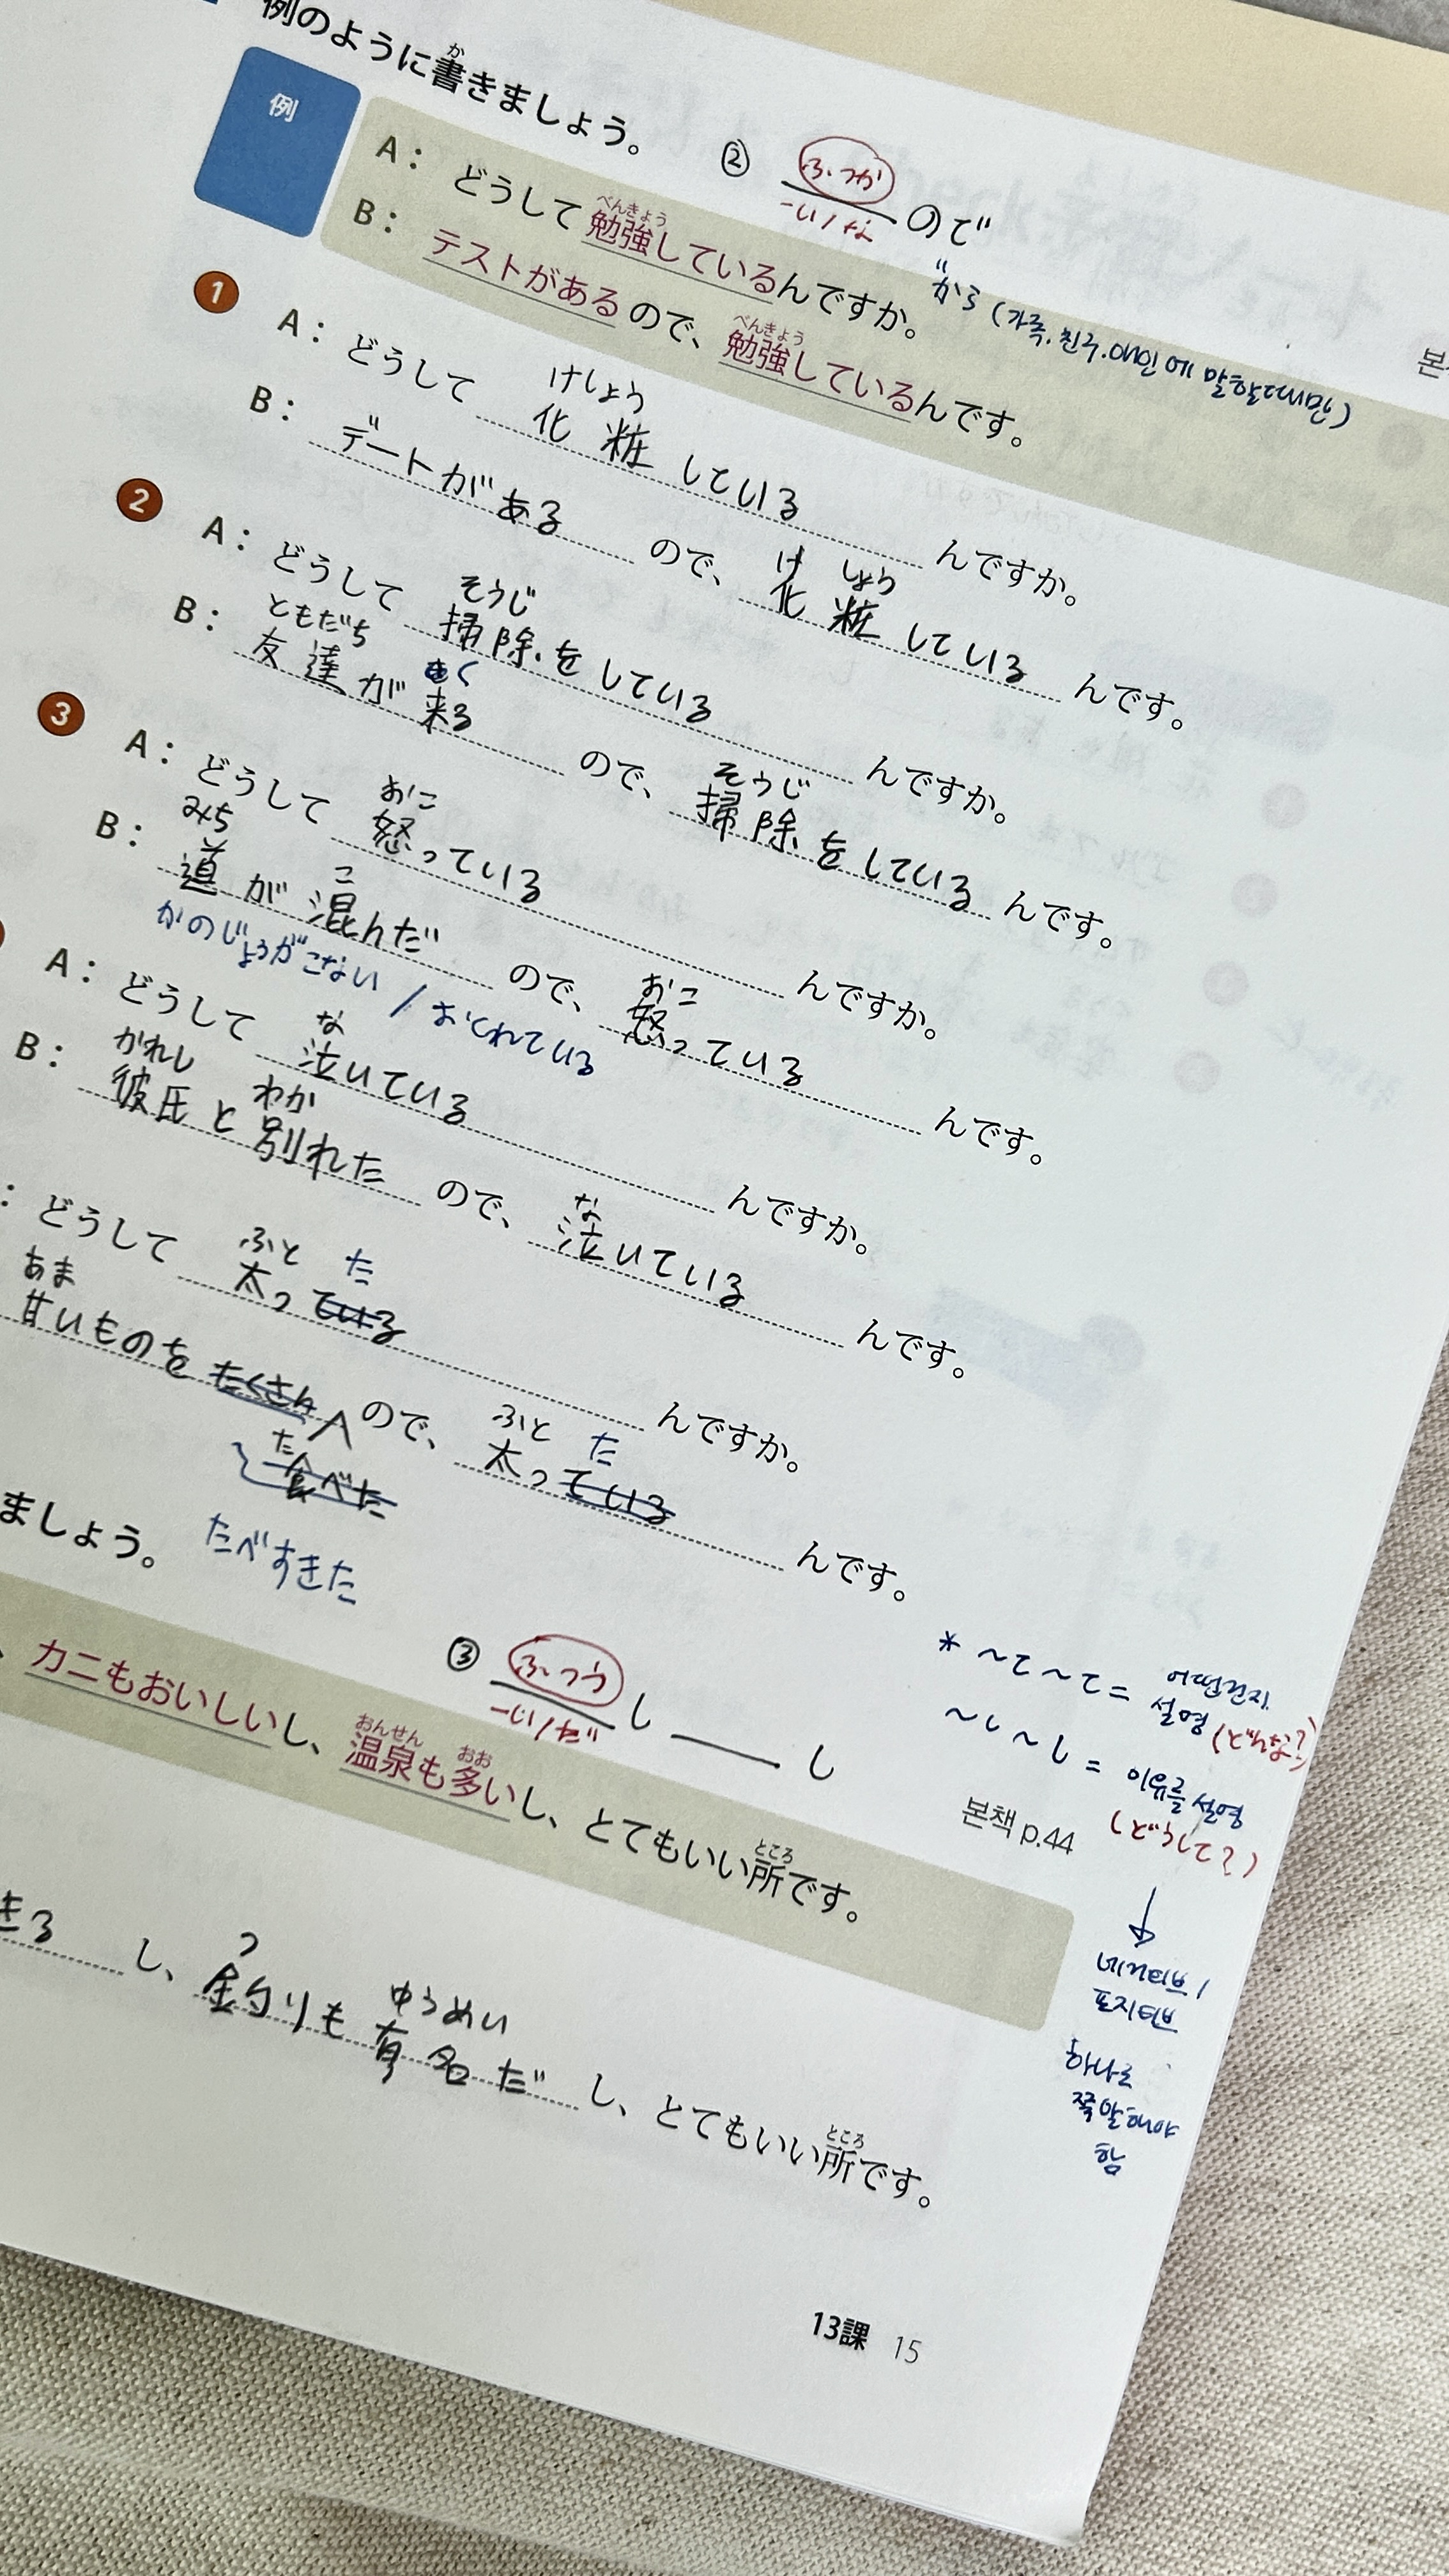 例のように書きましょう。
② ふつか
-い/な ので
例
A： どうして勉強しているんですか。
"から (가족.친구.애인에 말할때만)
B： テストがあるので、勉強しているんです。
1
A： どうして 化粧している んですか。
B： デートがある ので、化粧している んです。
2
A： どうして 掃除をしている んですか。
B： 友達が来る ので、掃除をしている んです。
3
A： どうして 怒っている んですか。
B： 道が混んだ ので、怒っている んです。
かのじょうがこない / おくれている
A： どうして 泣いている んですか。
B： 彼氏と別れた ので、泣いている んです。
： どうして 太った ている んですか。
甘いものを たくさん ので、太った ている んです。
食べた
たべすきた
ましょう。
③ ふつう
-い/だ し ___ し
* ～て～て = 어떤건지 설명 (どんな?)
～し～し = 이유를 설명 (どうして?)
↓
네거티브/
포지티브
하나로
쭉말해야
함
본책 p.44
、カニもおいしいし、温泉も多いし、とてもいい所です。
きる し、釣りも有名だ し、とてもいい所です。
13課 15